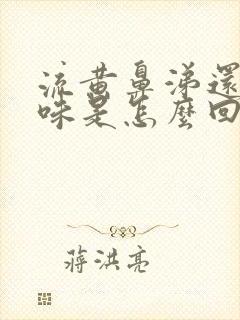 流黄鼻涕還
味是怎麼回
蔣洪亮